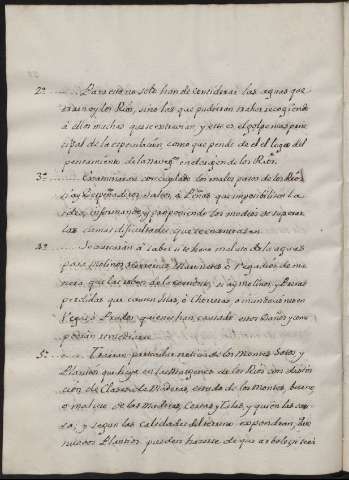 2º Para esto no solo han de considerar las aguas que
traen oy los Rios, sino las que pudieran traher recogiendo
à ellos muchas que se extravian, y este es el golpe mas prin-
cipal de la especulacion, como que pende de el el logro del
pensamiento de la naveg.on en el origen de los Rios.
3º Examinaran con cuydado los malos pasos de los Rios
y Despeñaderos, saltos, ò Peñas que imposibiliten la
idea, informando, y proponiendo los medios de superar
las demas dificultades que se encuentran.
4º Procuraràn à saber si se hace mal uso de las aguas
para Molinos, Herrerias, Martinetes ò Regadios de ma-
nera que las roben de la corriente; si ay molinos, y Presas
perdidas que causen Islas, ò Chorreras, ò inundaciones en
Vegas, ò Prados, quienes han causado estos Daños y como
podrian remediarse.
5º Traeran particular noticia de los Montes, Sotos, y
Plantios que haya en las Margenes de los Rios con distin-
cion de Clases de Maderas, estado de los Montes, buena
o mala que de las Maderas, Cortas, y Talas, y quien las
y segun las calidades del terreno expondran, que
nuevos Plantios pueden hacerse de que arboles, y si